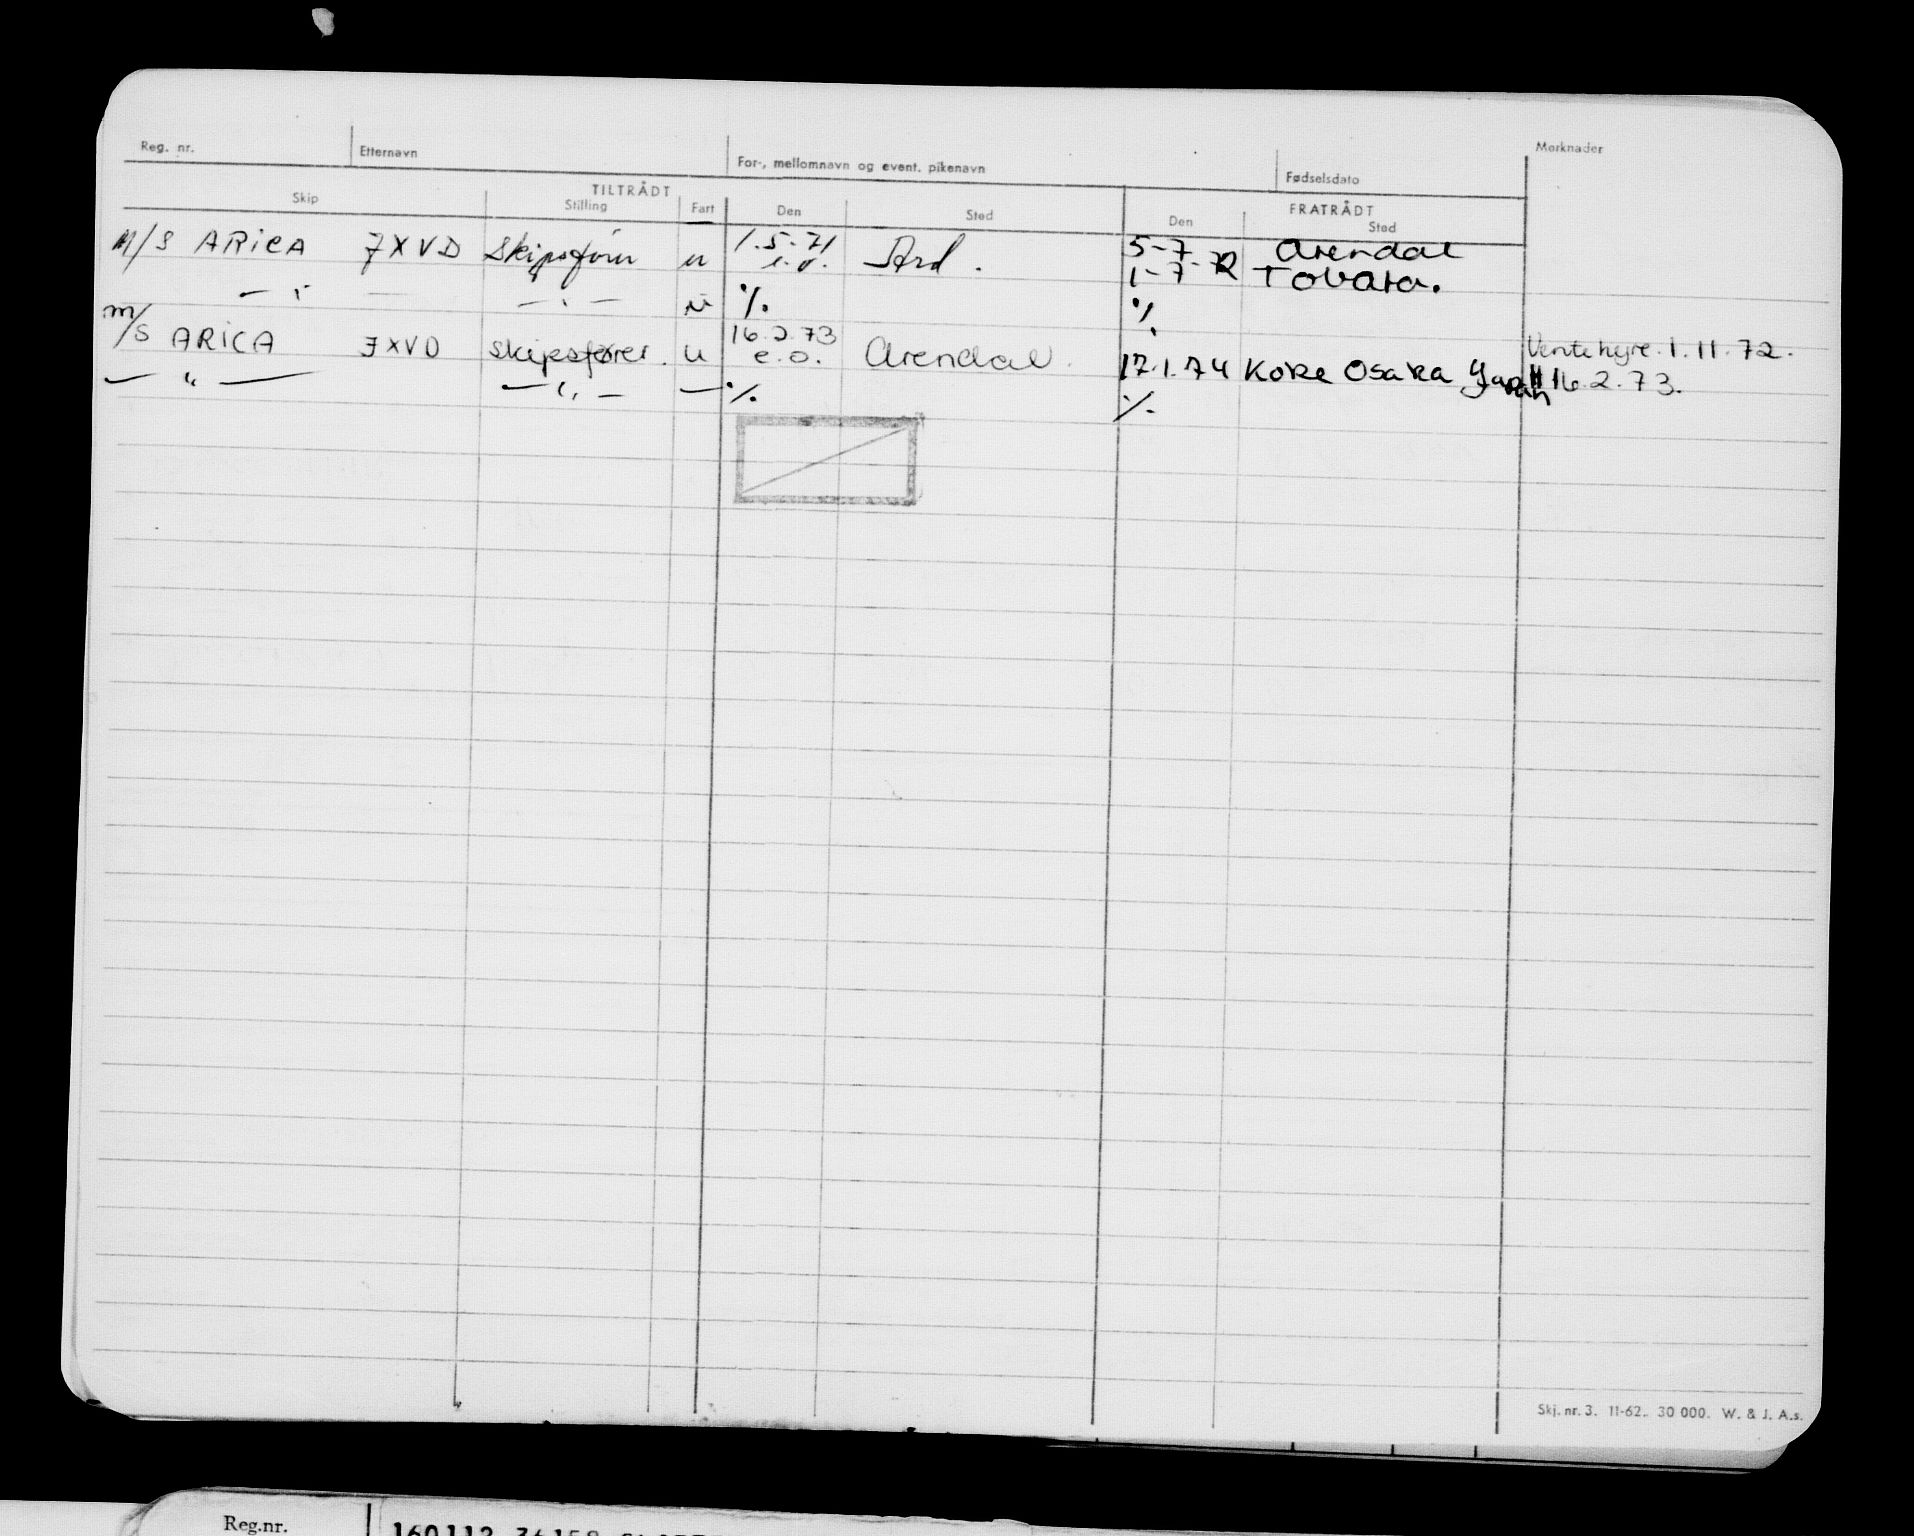 Reg. nr. Etternavn For-, mellomnavn og event. pikenavn Fødselsdato Merknader
TILTRÅDT FRATRÅDT
Skip Stilling Fart Den Sted Den Sted
M/S ARICA JXVD Skipsfører u 1.5.71 e.o. Ard. 5-7 Arendal
1-7-72 Tobata.
— " — — " — u % %
m/S ARICA JXVD skipsfører. u 16.2.73 e.o. Arendal. 17.1.74 Kobe Osaka Japan Ventehyre. 1.11.72.
16.2.73.
— " — — " — — % %
Skj. nr. 3. 11-62. 30 000. W. & J. A.s.
Reg.nr. 160112